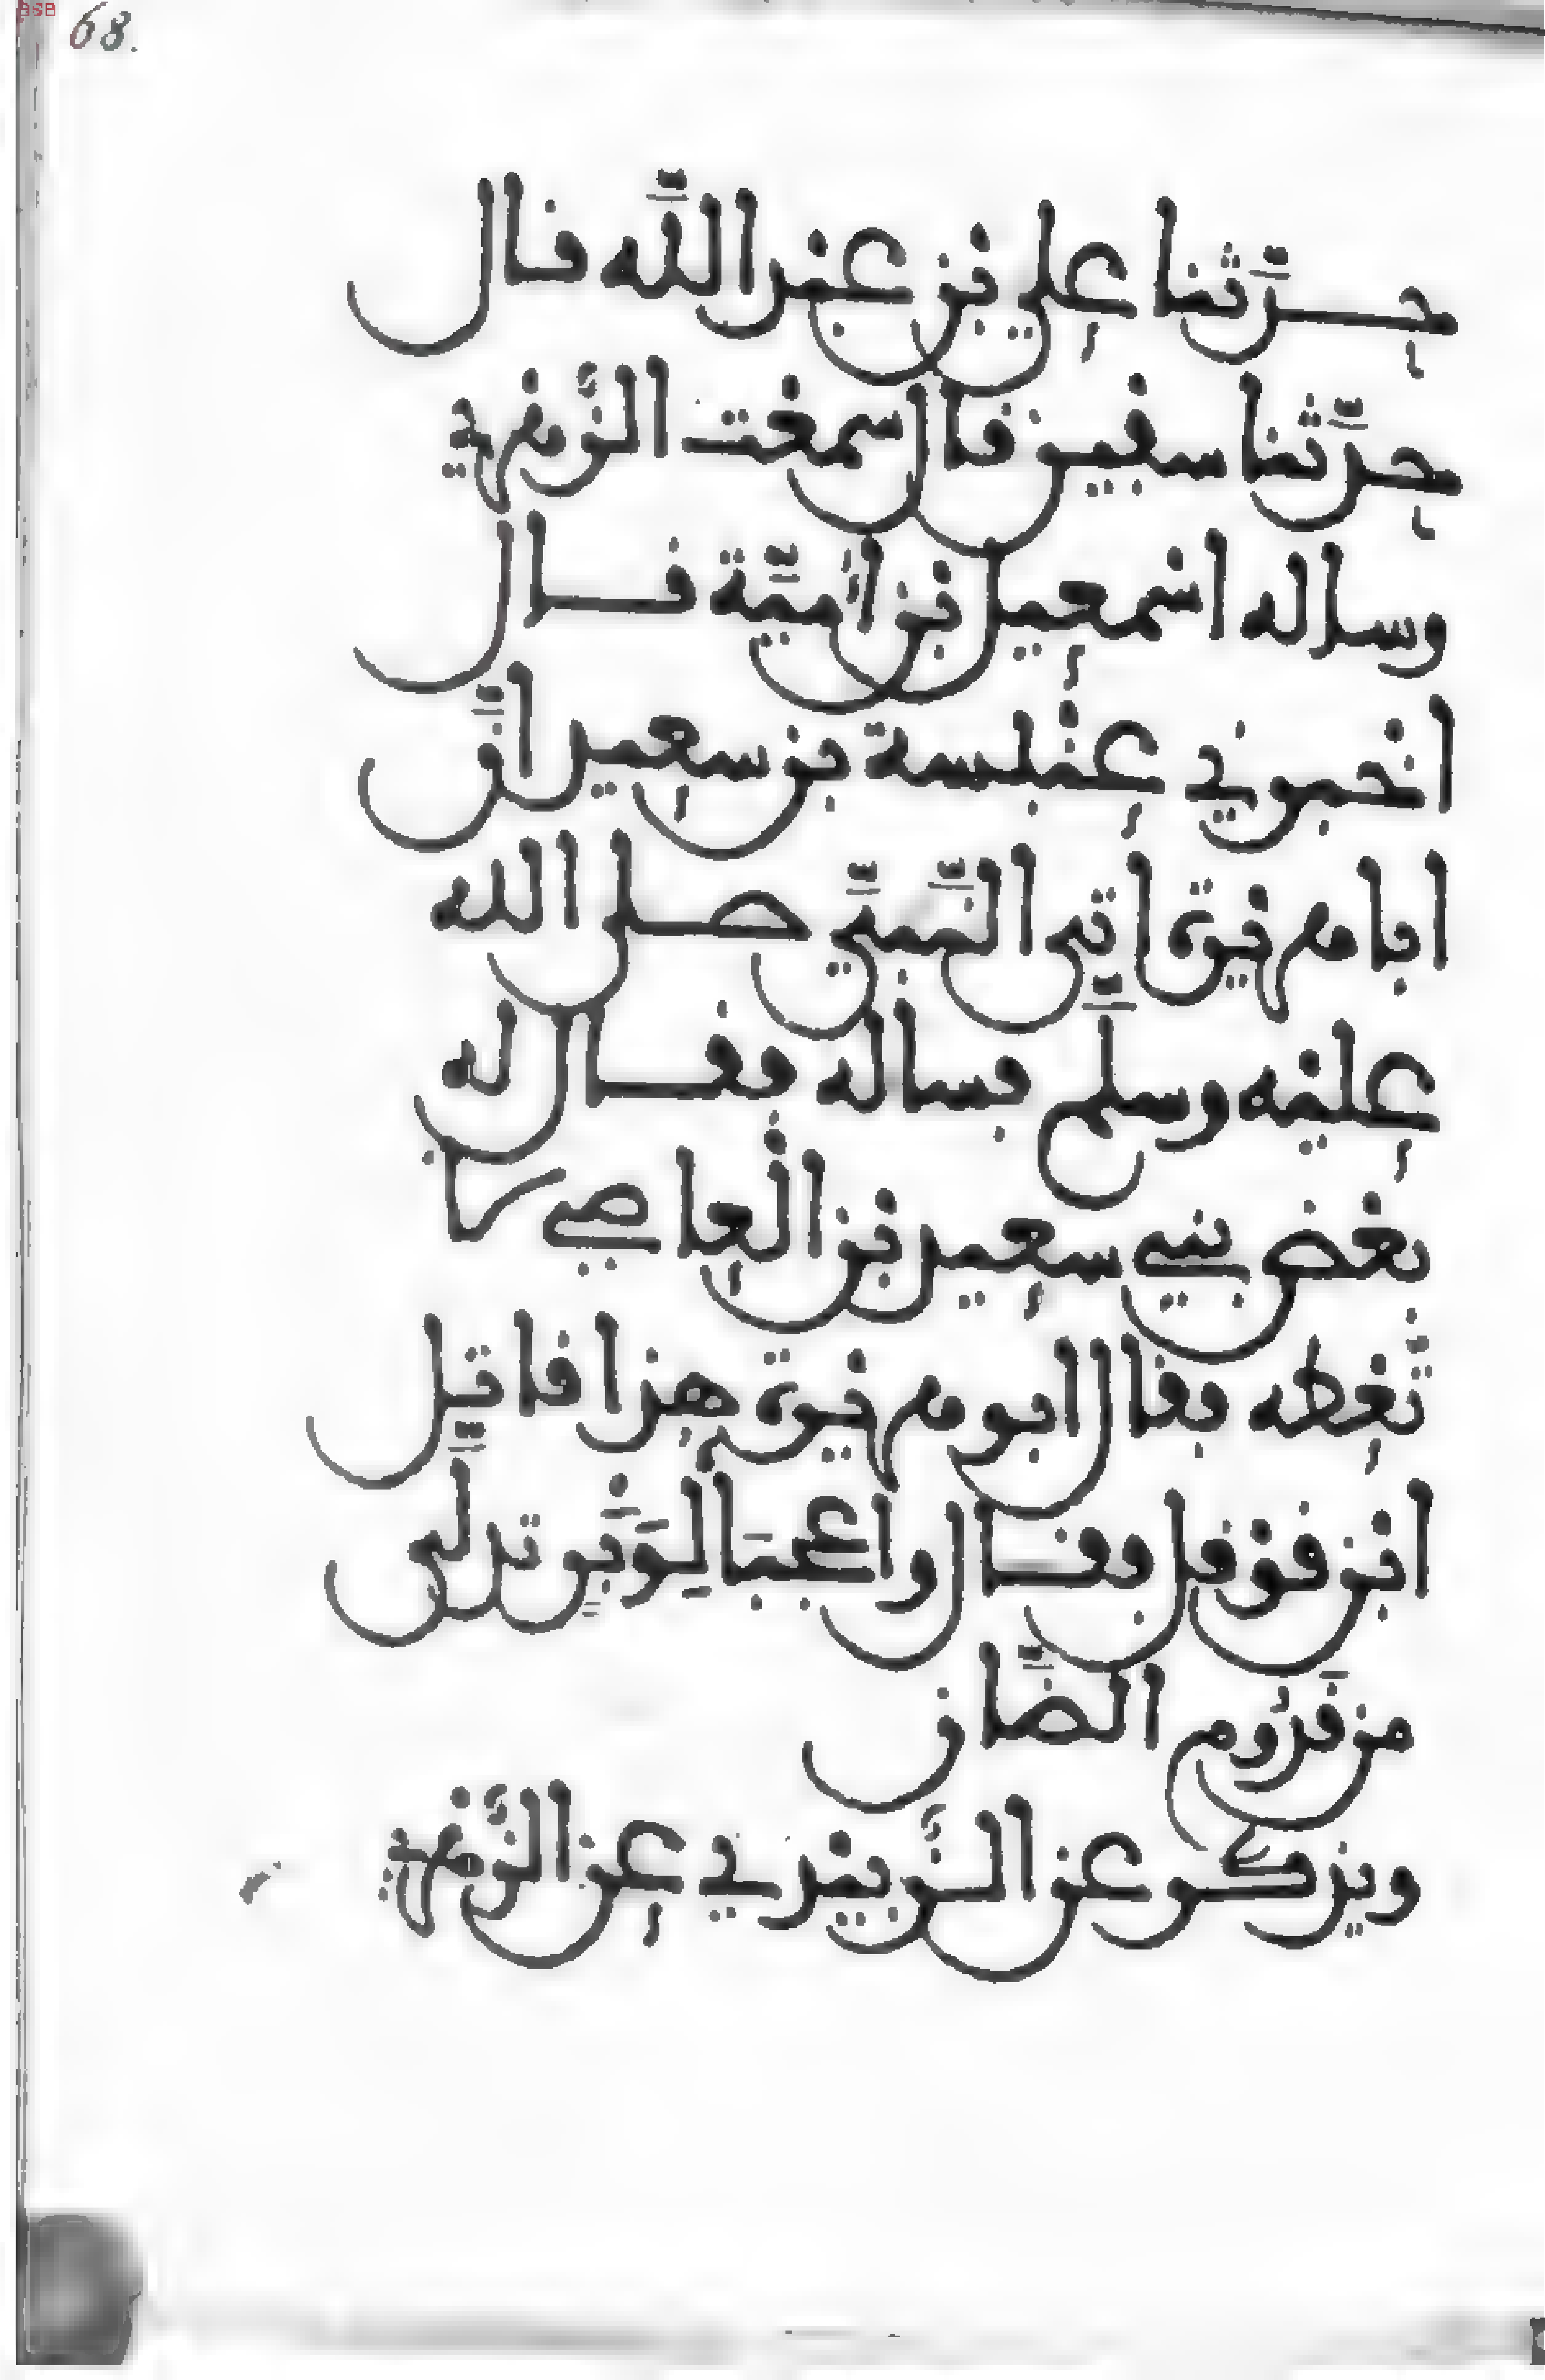 68.
حدثنا علي بن عبد الله قال
حدثنا سفين قال سمعت الزهري
وساله اسمعيل بن امية قال
اخبرني عنبسة بن سعيد ان
ابا هريرة اتى النبي صلى الله
عليه وسلم فساله فقال له
بعض بني سعيد بن العاصي لا
تعطه فقال ابو هريرة هذا قاتل
ابن قوقل فقال واعجبا لوبر تدلى
من قدوم الضان
ويذكر عن الزبيدي عن الزهري